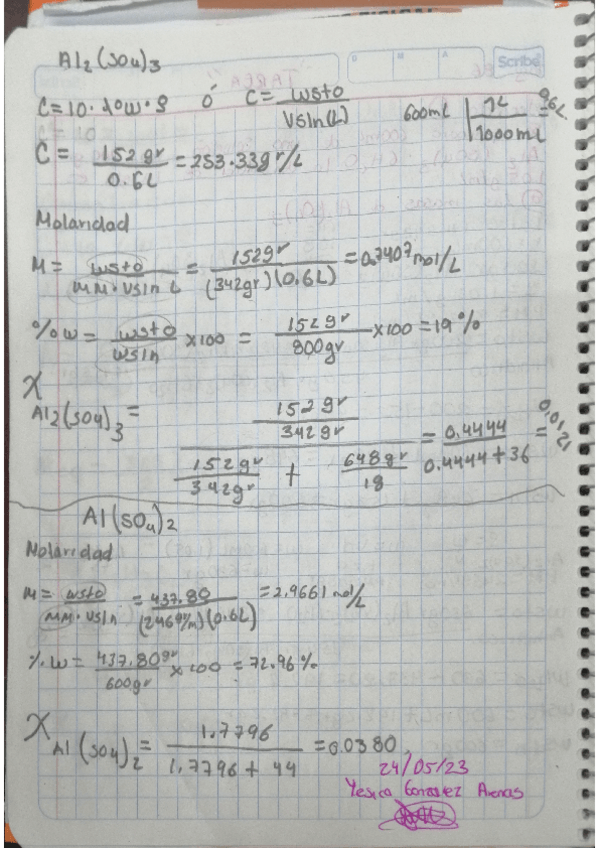 Al₂(SO₄)₃
D M A Scribe
C=10·%w·ρ ó C= wsto / Vsln(L) 600mL | 1L / 1000mL = 0.6L
C= 152gr / 0.6L = 253.33gr/L
Molaridad
M= wsto / MM·Vsln L = 152gr / (342gr)(0.6L) = 0.7407 mol/L
%w= wsto / wsln ×100 = 152gr / 800gr ×100 = 19%
X Al₂(SO₄)₃ = 152gr / 342gr / 152gr / 342gr + 648gr / 18 = 0.4444 / 0.4444+36 = 0.0121
Al(SO₄)₂
Molaridad
M= wsto / MM·Vsln = 437.80 / (246gr/m)(0.6L) = 2.9661 mol/L
%w= 437.80gr / 600gr ×100 = 72.96%
X Al(SO₄)₂ = 1.7796 / 1.7796+44 = 0.0380
24/05/23
Yesica Gonzalez Arenas